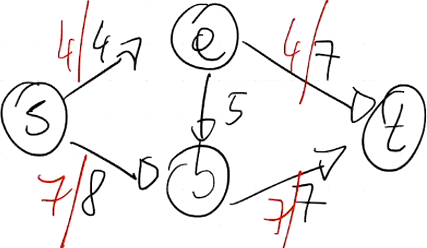 4/4 a 4/7
s 5 t
7/8 b 7/7